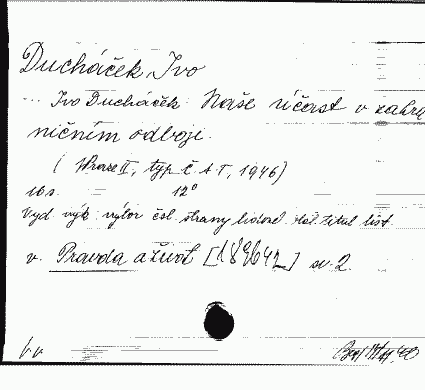 Ducháček, Ivo
... Ivo Ducháček: Naše účast v zahra
ničním odboji.
(Praze II, typ. Č.A.T, 1946)
16 s. 12°
Vyd. výk. výbor čsl. strany lidové. Též titul. list
v. Pravda a život [189642] sv. 2.